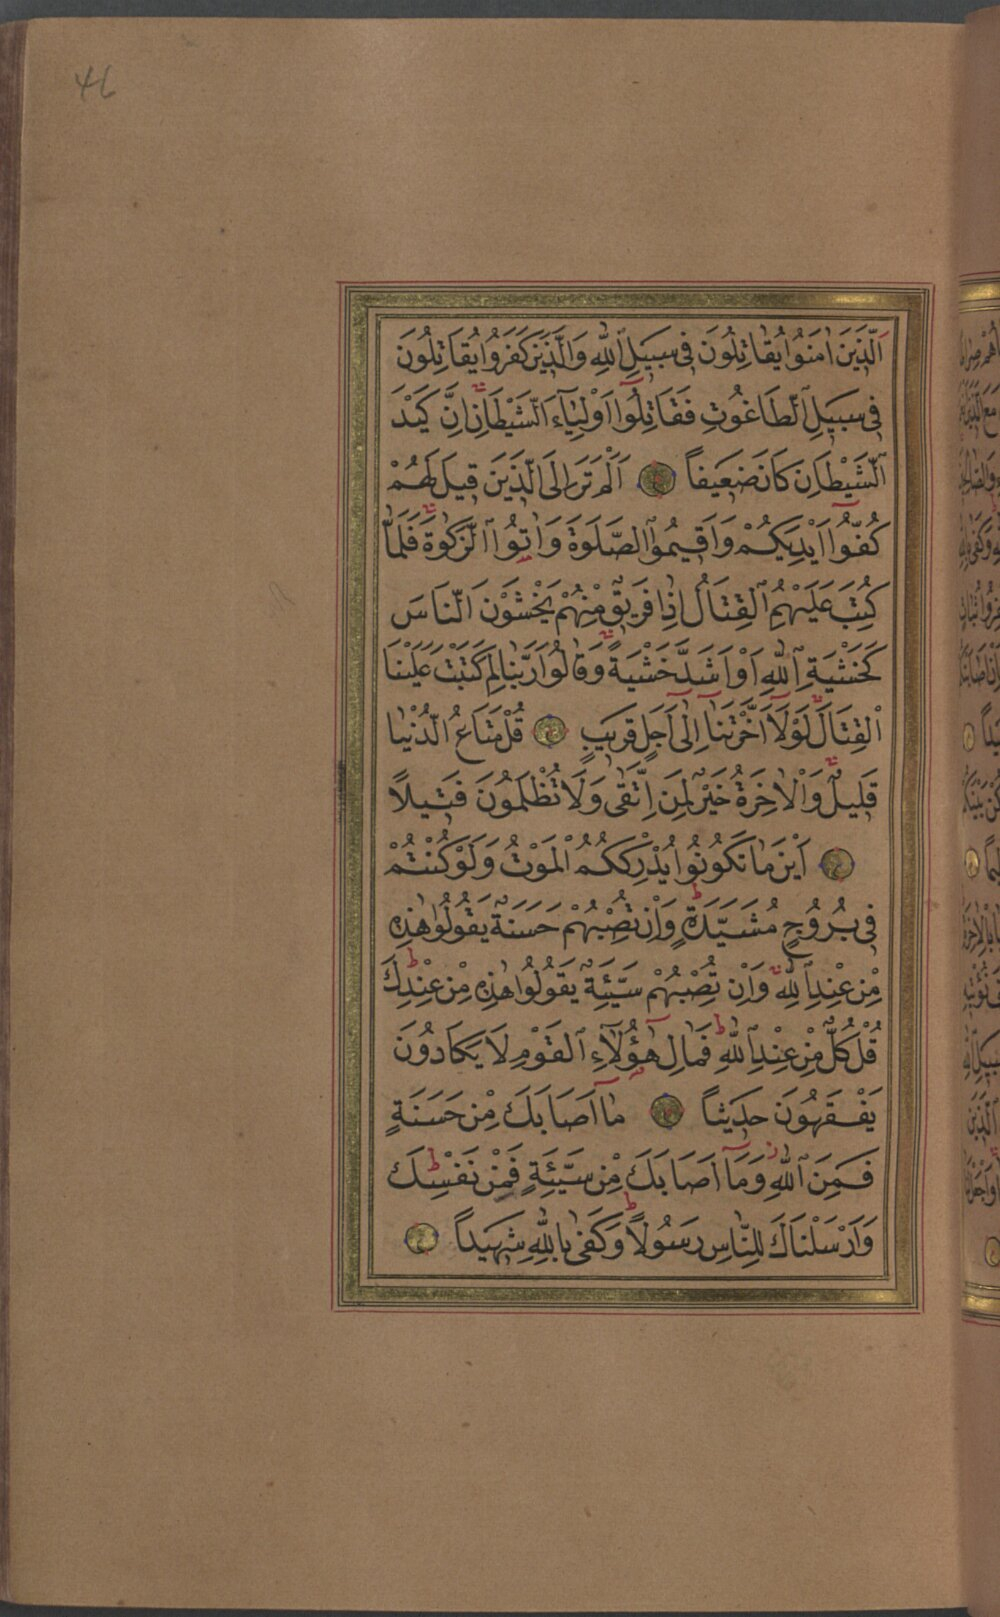 46
اَلَّذِينَ اٰمَنُوا يُقَاتِلُونَ فِى سَبِيلِ اللّٰهِ وَالَّذِينَ كَفَرُوا يُقَاتِلُونَ
فِى سَبِيلِ الطَّاغُوتِ فَقَاتِلُوا اَوْلِيَاءَ الشَّيْطَانِ اِنَّ كَيْدَ
الشَّيْطَانِ كَانَ ضَعِيفًا اَلَمْ تَرَ اِلَى الَّذِينَ قِيلَ لَهُمْ
كُفُّوا اَيْدِيَكُمْ وَاَقِيمُوا الصَّلٰوةَ وَاٰتُوا الزَّكٰوةَ فَلَمَّا
كُتِبَ عَلَيْهِمُ الْقِتَالُ اِذَا فَرِيقٌ مِنْهُمْ يَخْشَوْنَ النَّاسَ
كَخَشْيَةِ اللّٰهِ اَوْ اَشَدَّ خَشْيَةً وَقَالُوا رَبَّنَا لِمَ كَتَبْتَ عَلَيْنَا
الْقِتَالَ لَوْلَا اَخَّرْتَنَا اِلٰى اَجَلٍ قَرِيبٍ قُلْ مَتَاعُ الدُّنْيَا
قَلِيلٌ وَالْاٰخِرَةُ خَيْرٌ لِمَنِ اتَّقٰى وَلَا تُظْلَمُونَ فَتِيلًا
اَيْنَ مَا تَكُونُوا يُدْرِكْكُمُ الْمَوْتُ وَلَوْ كُنْتُمْ
فِى بُرُوجٍ مُشَيَّدَةٍ وَاِنْ تُصِبْهُمْ حَسَنَةٌ يَقُولُوا هٰذِهِ
مِنْ عِنْدِ اللّٰهِ وَاِنْ تُصِبْهُمْ سَيِّئَةٌ يَقُولُوا هٰذِهِ مِنْ عِنْدِكَ
قُلْ كُلٌّ مِنْ عِنْدِ اللّٰهِ فَمَالِ هٰؤُلَاءِ الْقَوْمِ لَا يَكَادُونَ
يَفْقَهُونَ حَدِيثًا مَا اَصَابَكَ مِنْ حَسَنَةٍ
فَمِنَ اللّٰهِ وَمَا اَصَابَكَ مِنْ سَيِّئَةٍ فَمِنْ نَفْسِكَ
وَاَرْسَلْنَاكَ لِلنَّاسِ رَسُولًا وَكَفٰى بِاللّٰهِ شَهِيدًا